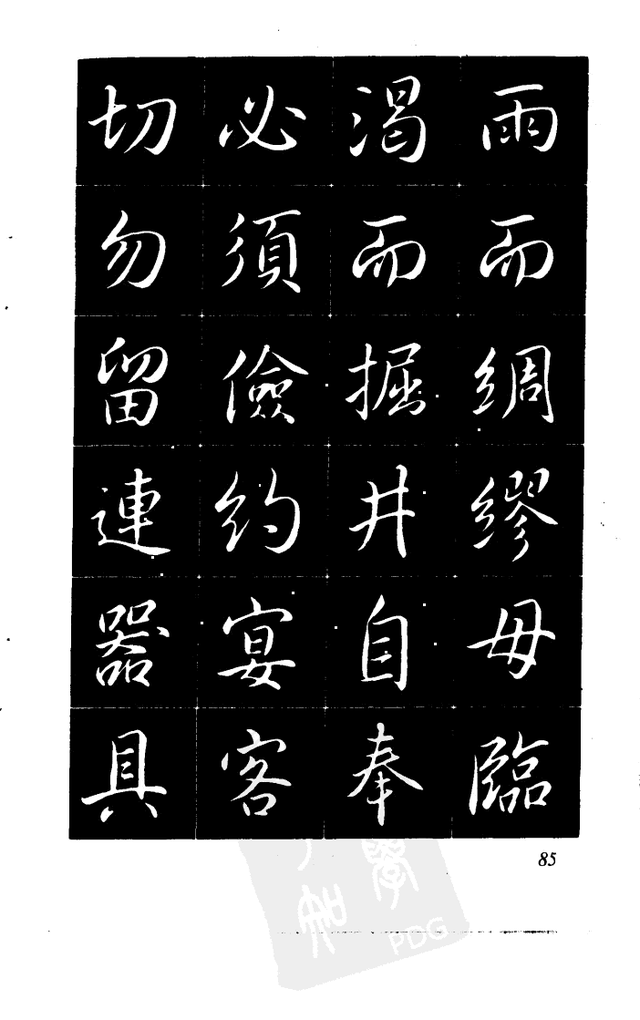 雨而綢繆毋臨
渴而掘井自奉
必須儉約宴客
切勿留連器具
85
PDG